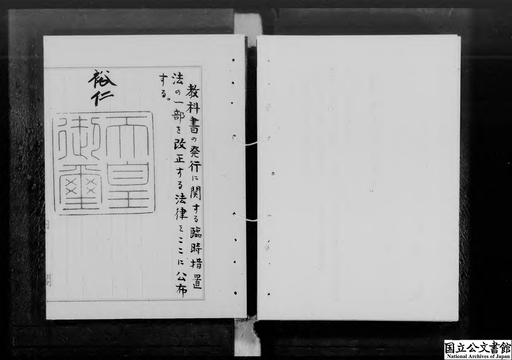 教科書の発行に関する臨時措置
法の一部を改正する法律をここに公布
する。
裕仁
天皇
御璽
国立公文書館
National Archives of Japan